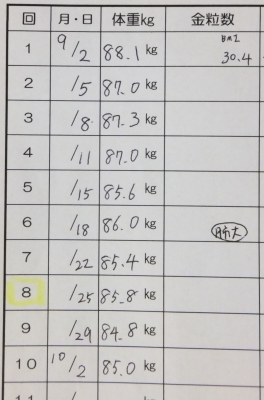 回 月・日 体重kg 金粒数
1 9/2 88.1 kg BMI 30.4
2 /5 87.0 kg
3 /8 87.3 kg
4 /11 87.0 kg
5 /15 85.6 kg
6 /18 86.0 kg
7 /22 85.4 kg
8 /25 85.8 kg
9 /29 84.8 kg
10 10/2 85.0 kg
11